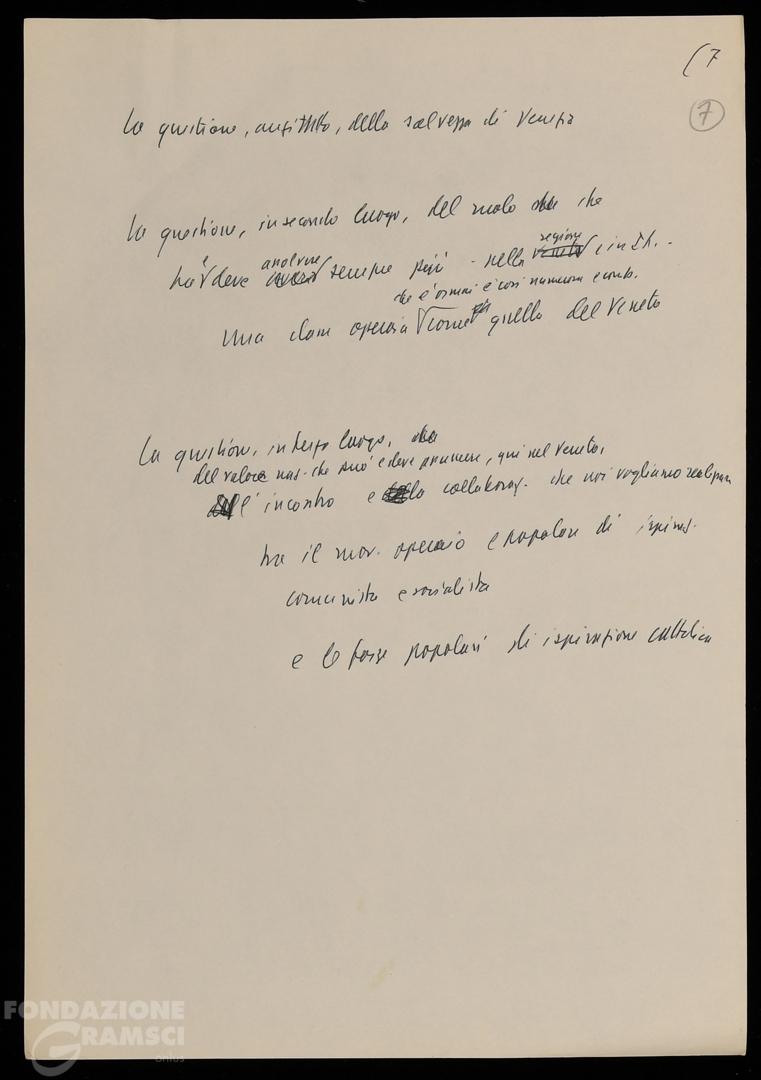 (7
7
La questione, anzitutto, della salvezza di Venezia
La questione, in secondo luogo, del ruolo che
ha e deve avere sempre più - nella regione e in It. -
che è ormai è così numerosa e comb.
Una classe operaia come quella del Veneto
La questione, in terzo luogo,
del valore naz. che può e deve assumere, qui nel Veneto,
l'incontro e la collaboraz. che noi vogliamo realizzare
tra il mov. operaio e popolare di ispiraz.
comunista e socialista
e le forze popolari di ispirazione cattolica
FONDAZIONE
GRAMSCI
onlus